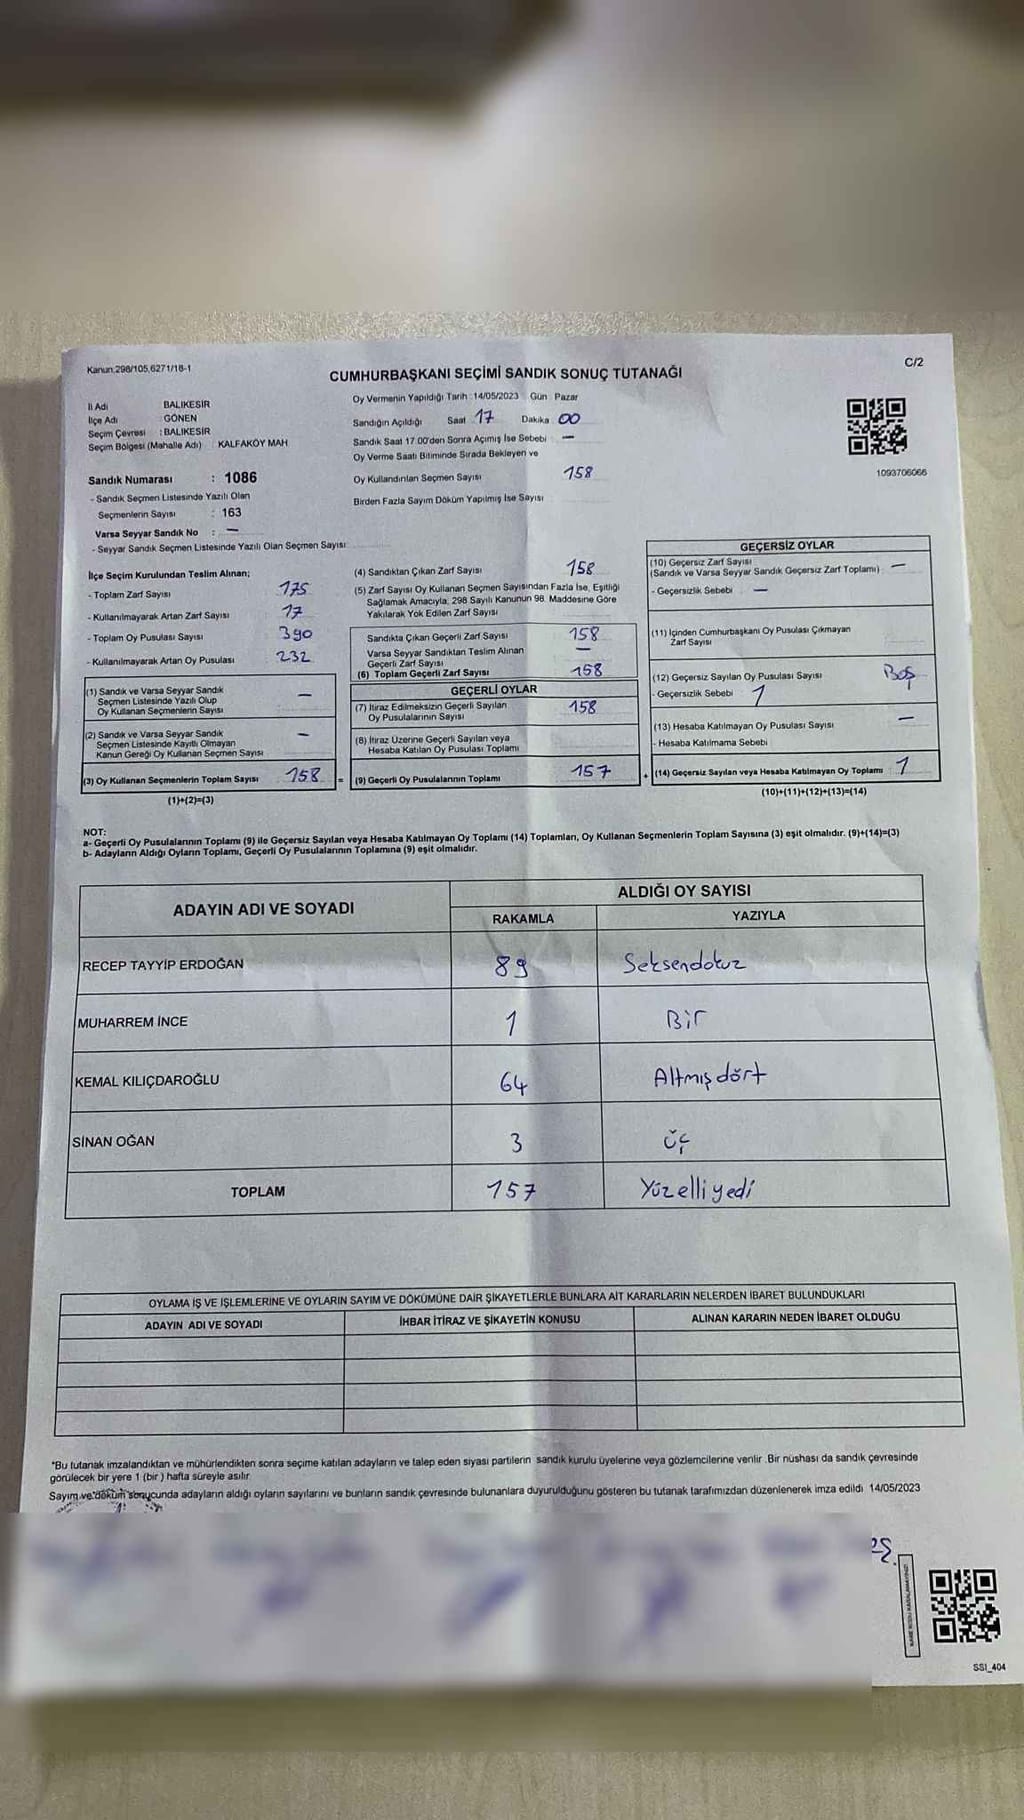 Kanun:298/105,6271/18-1
C/2
CUMHURBAŞKANI SEÇİMİ SANDIK SONUÇ TUTANAĞI
İl Adı BALIKESİR
İlçe Adı GÖNEN
Seçim Çevresi : BALIKESİR
Seçim Bölgesi (Mahalle Adı) KALFAKÖY MAH
Sandık Numarası : 1086
- Sandık Seçmen Listesinde Yazılı Olan
Seçmenlerin Sayısı : 163
Varsa Seyyar Sandık No : —
- Seyyar Sandık Seçmen Listesinde Yazılı Olan Seçmen Sayısı
Oy Vermenin Yapıldığı Tarih :14/05/2023 Gün Pazar
Sandığın Açıldığı Saat 17 Dakika 00
Sandık Saat 17.00'den Sonra Açımış İse Sebebi —
Oy Verme Saati Bitiminde Sırada Bekleyen ve
Oy Kullandırılan Seçmen Sayısı 158
Birden Fazla Sayım Döküm Yapılmış İse Sayısı
1093706066
İlçe Seçim Kurulundan Teslim Alınan;
- Toplam Zarf Sayısı 175
- Kullanılmayarak Artan Zarf Sayısı 17
- Toplam Oy Pusulası Sayısı 390
- Kullanılmayarak Artan Oy Pusulası 232
(1) Sandık ve Varsa Seyyar Sandık
Seçmen Listesinde Yazılı Olup
Oy Kullanan Seçmenlerin Sayısı —
(2) Sandık ve Varsa Seyyar Sandık
Seçmen Listesinde Kayıtlı Olmayan
Kanun Gereği Oy Kullanan Seçmen Sayısı —
(3) Oy Kullanan Seçmenlerin Toplam Sayısı 158 =
(1)+(2)=(3)
(4) Sandıktan Çıkan Zarf Sayısı 158
(5) Zarf Sayısı Oy Kullanan Seçmen Sayısından Fazla İse, Eşitliği
Sağlamak Amacıyla, 298 Sayılı Kanunun 98. Maddesine Göre
Yakılarak Yok Edilen Zarf Sayısı
Sandıkta Çıkan Geçerli Zarf Sayısı 158
Varsa Seyyar Sandıktan Teslim Alınan
Geçerli Zarf Sayısı —
(6) Toplam Geçerli Zarf Sayısı 158
GEÇERLİ OYLAR
(7) İtiraz Edilmeksizin Geçerli Sayılan
Oy Pusulalarının Sayısı 158
(8) İtiraz Üzerine Geçerli Sayılan veya
Hesaba Katılan Oy Pusulası Toplamı
(9) Geçerli Oy Pusulalarının Toplamı 157 +
GEÇERSİZ OYLAR
(10) Geçersiz Zarf Sayısı
(Sandık ve Varsa Seyyar Sandık Geçersiz Zarf Toplamı) —
- Geçersizlik Sebebi —
(11) İçinden Cumhurbaşkanı Oy Pusulası Çıkmayan
Zarf Sayısı
(12) Geçersiz Sayılan Oy Pusulası Sayısı Boş
- Geçersizlik Sebebi 1
(13) Hesaba Katılmayan Oy Pusulası Sayısı —
- Hesaba Katılmama Sebebi
(14) Geçersiz Sayılan veya Hesaba Katılmayan Oy Toplamı 1
(10)+(11)+(12)+(13)=(14)
NOT:
a- Geçerli Oy Pusulalarının Toplamı (9) ile Geçersiz Sayılan veya Hesaba Katılmayan Oy Toplamı (14) Toplamları, Oy Kullanan Seçmenlerin Toplam Sayısına (3) eşit olmalıdır. (9)+(14)=(3)
b- Adayların Aldığı Oyların Toplamı, Geçerli Oy Pusulalarının Toplamına (9) eşit olmalıdır.
ADAYIN ADI VE SOYADI ALDIĞI OY SAYISI
RAKAMLA YAZIYLA
RECEP TAYYİP ERDOĞAN 89 Seksendokuz
MUHARREM İNCE 1 Bir
KEMAL KILIÇDAROĞLU 64 Altmışdört
SİNAN OĞAN 3 üç
TOPLAM 157 Yüzelliyedi
OYLAMA İŞ VE İŞLEMLERİNE VE OYLARIN SAYIM VE DÖKÜMÜNE DAİR ŞİKAYETLERLE BUNLARA AİT KARARLARIN NELERDEN İBARET BULUNDUKLARI
ADAYIN ADI VE SOYADI İHBAR İTİRAZ VE ŞİKAYETİN KONUSU ALINAN KARARIN NEDEN İBARET OLDUĞU
*Bu tutanak imzalandıktan ve mühürlendikten sonra seçime katılan adayların ve talep eden siyasi partilerin sandık kurulu üyelerine veya gözlemcilerine verilir. Bir nüshası da sandık çevresinde
görülecek bir yere 1 (bir ) hafta süreyle asılır.
Sayım ve döküm sonucunda adayların aldığı oyların sayılarını ve bunların sandık çevresinde bulunanlara duyurulduğunu gösteren bu tutanak tarafımızdan düzenlenerek imza edildi 14/05/2023
SSI_404